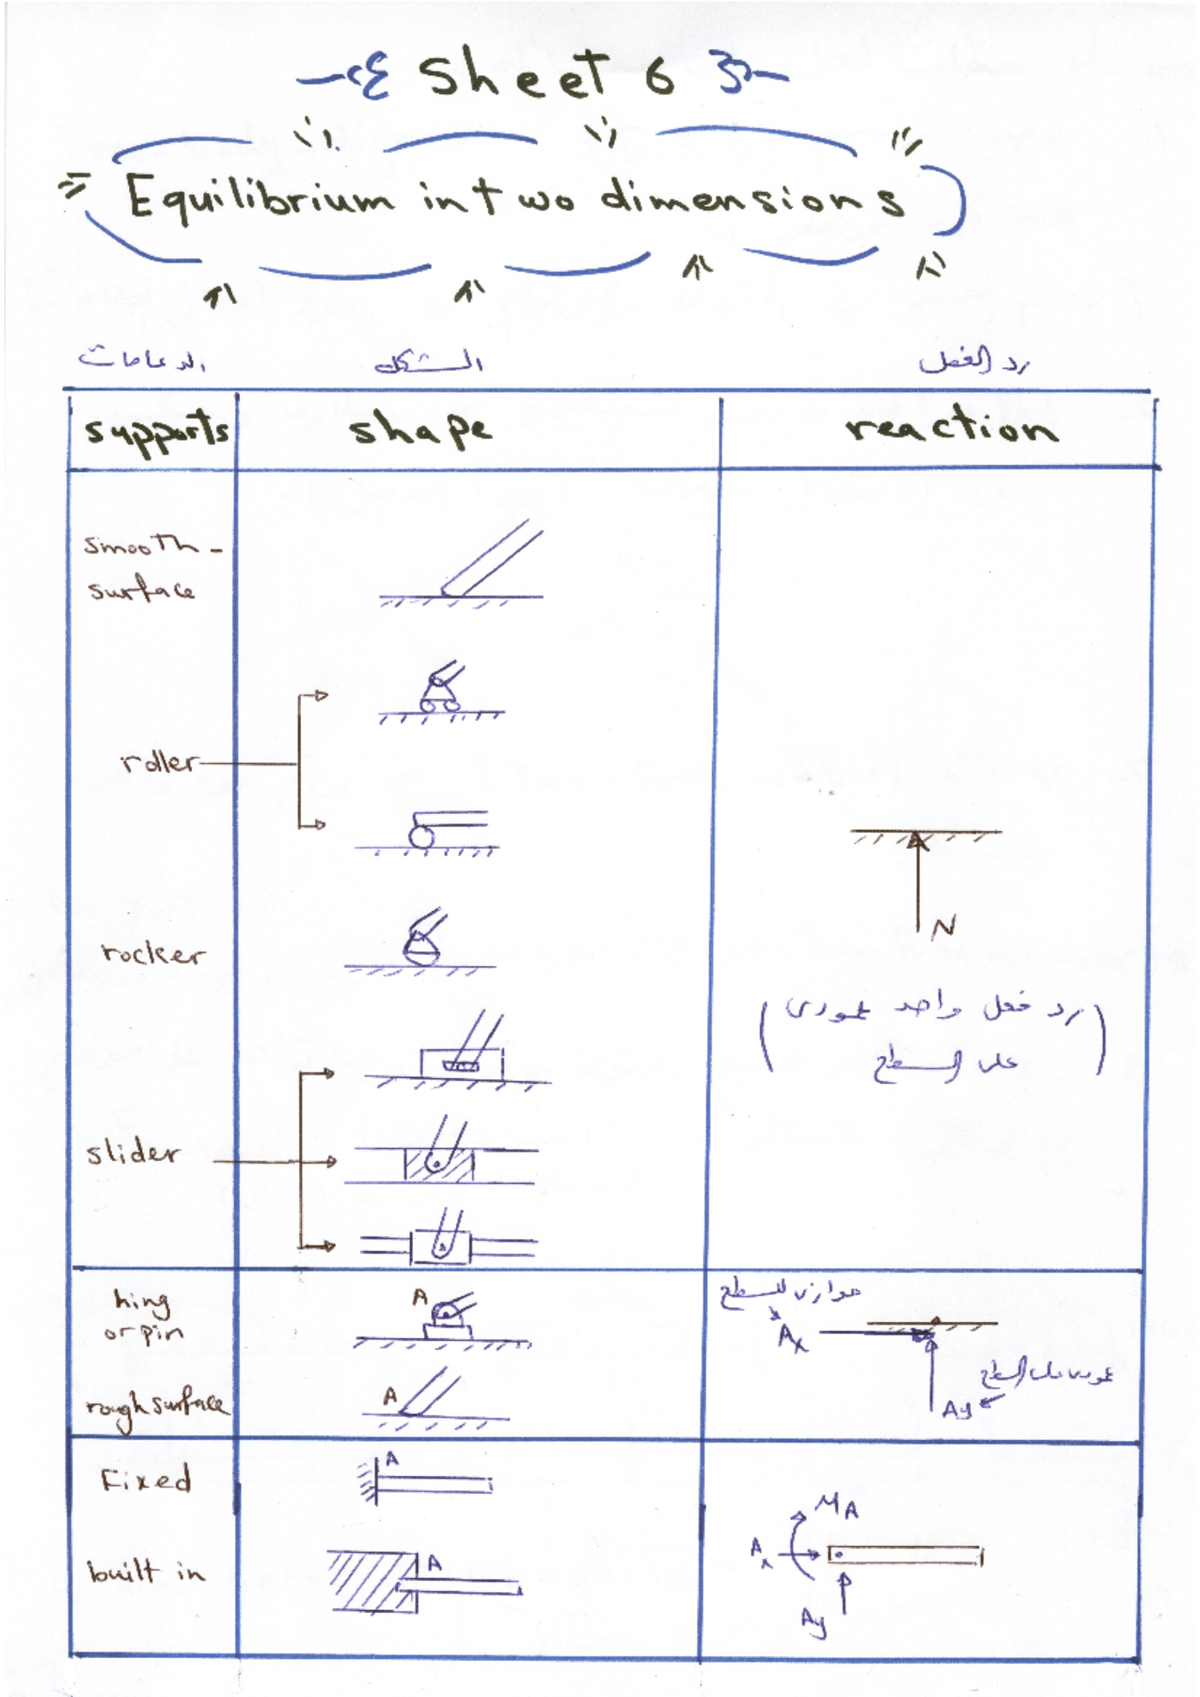 Sheet 6
Equilibrium in two dimensions
الدعامات الشكل رد الفعل
supports shape reaction
smooth-
surface
roller
N
rocker
(رد فعل واحد عمودى
على السطح)
slider
hing
or pin
A
موازى للسطح
Ax
عمودى على السطح
Ay
rough surface
A
Fixed
A
MA
Ax
built in
A
Ay